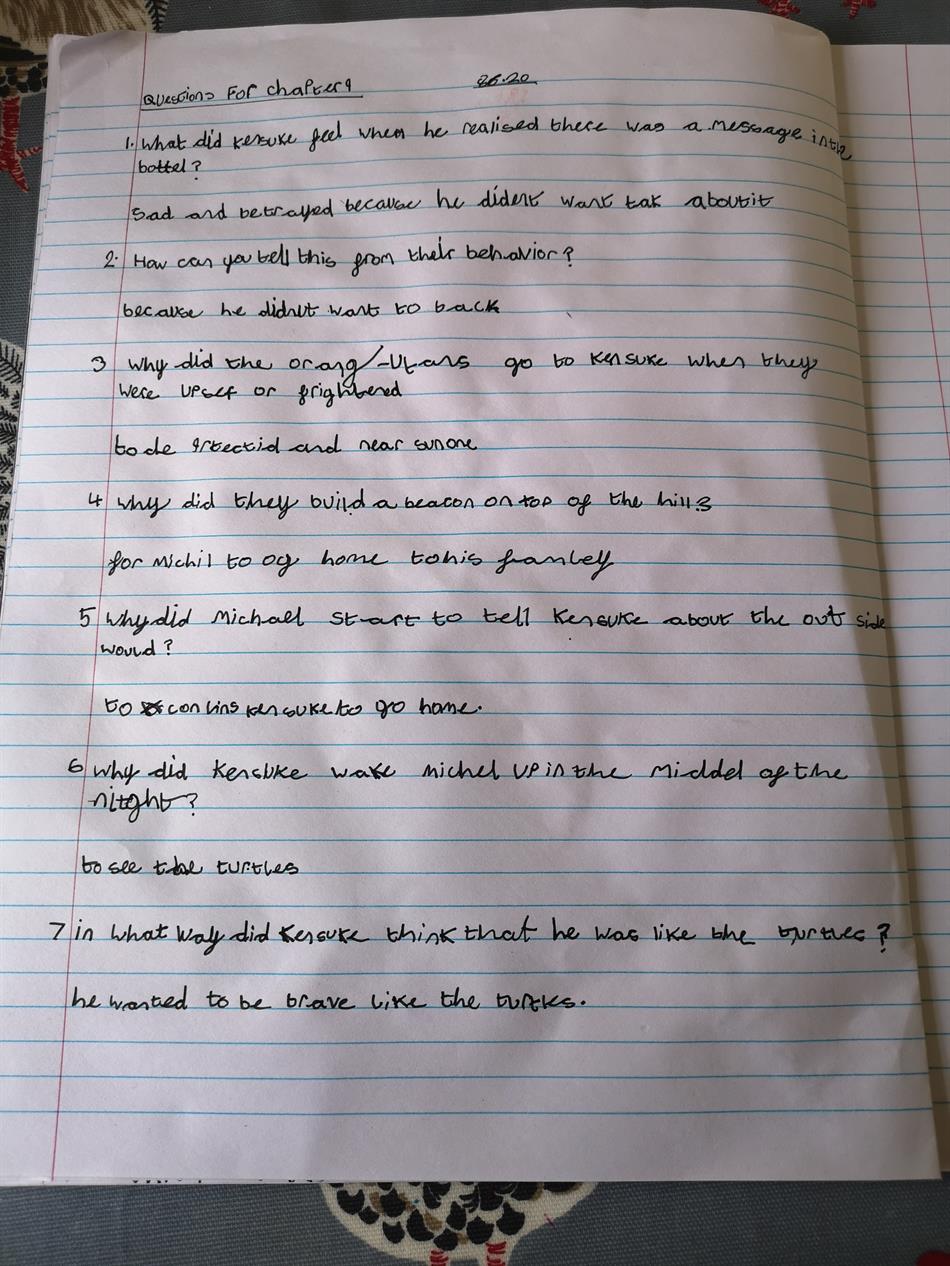 Questions For Chapter 9 26.20
1. What did Kensuke feel when he realised there was a message in the
bottel?
Sad and betrayed because he dident want tak about it
2. How can you tell this from their behavior?
because he didnt want to back
3 Why did the orang/-Utans go to Kensuke when they
were upset or frightened
to de and near sunone
4 Why did they build a beacon on top of the hills
for Michil to og home to his familey
5 Why did Michael start to tell Kensuke about the out side
would?
to convins Kensuke to go home.
6 Why did Kensuke wake Michel up in the middel of the
nitght?
to see the turtles
7 in what way did Kensuke think that he was like the turtles?
he wanted to be brave like the turtles.